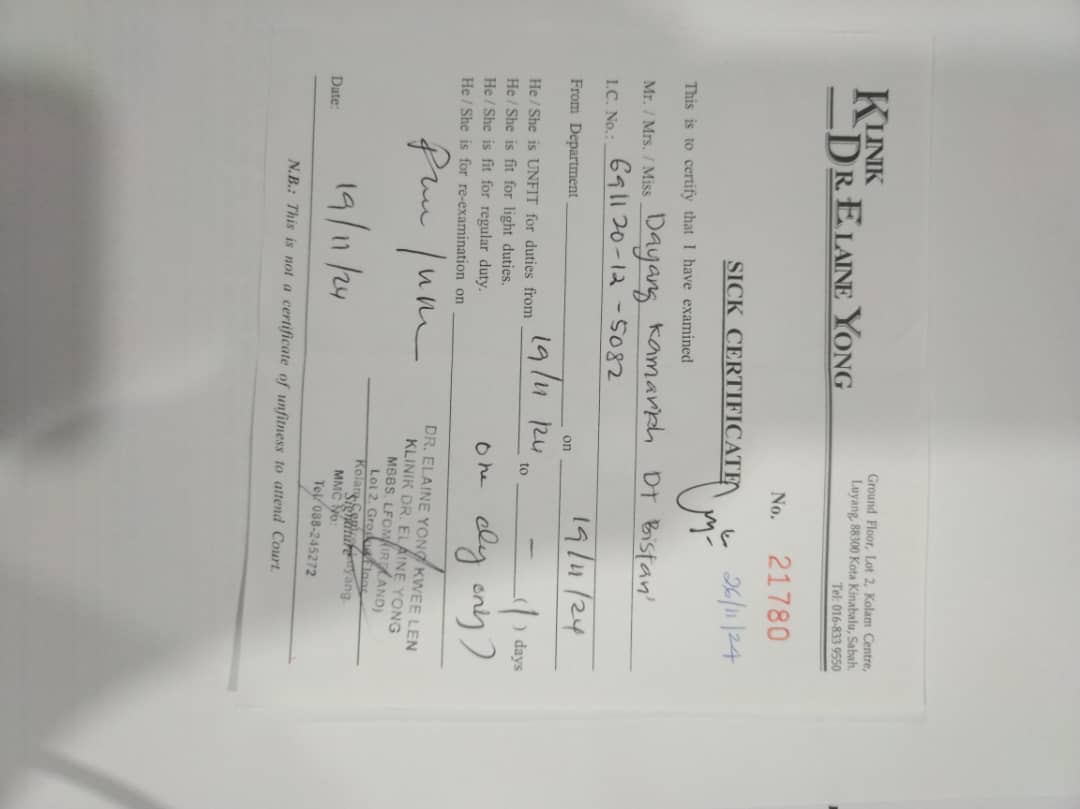 KLINIK
DR. ELAINE YONG
Ground Floor, Lot 2, Kolam Centre,
Luyang, 88300 Kota Kinabalu, Sabah.
Tel: 016-833 9550
No. 21780
SICK CERTIFICATE
26/11/24
This is to certify that I have examined
Mr. / Mrs. / Miss Dayang Kamariah Dt Bistari
I.C. No.: 691120-12-5082
From Department on 19/11/24
He / She is UNFIT for duties from 19/11/24 to — (1) days
He / She is fit for light duties.
He / She is fit for regular duty. one day only)
He / She is for re-examination on
DR. ELAINE YONG KWEE LEN
KLINIK DR. ELAINE YONG
MBBS. LFOM (IRELAND)
Lot 2, Ground Floor
Kolam Centre, Luyang.
Signature
MMC No:
Tel: 088-245272
Date: 19/11/24
N.B.: This is not a certificate of unfitness to attend Court.